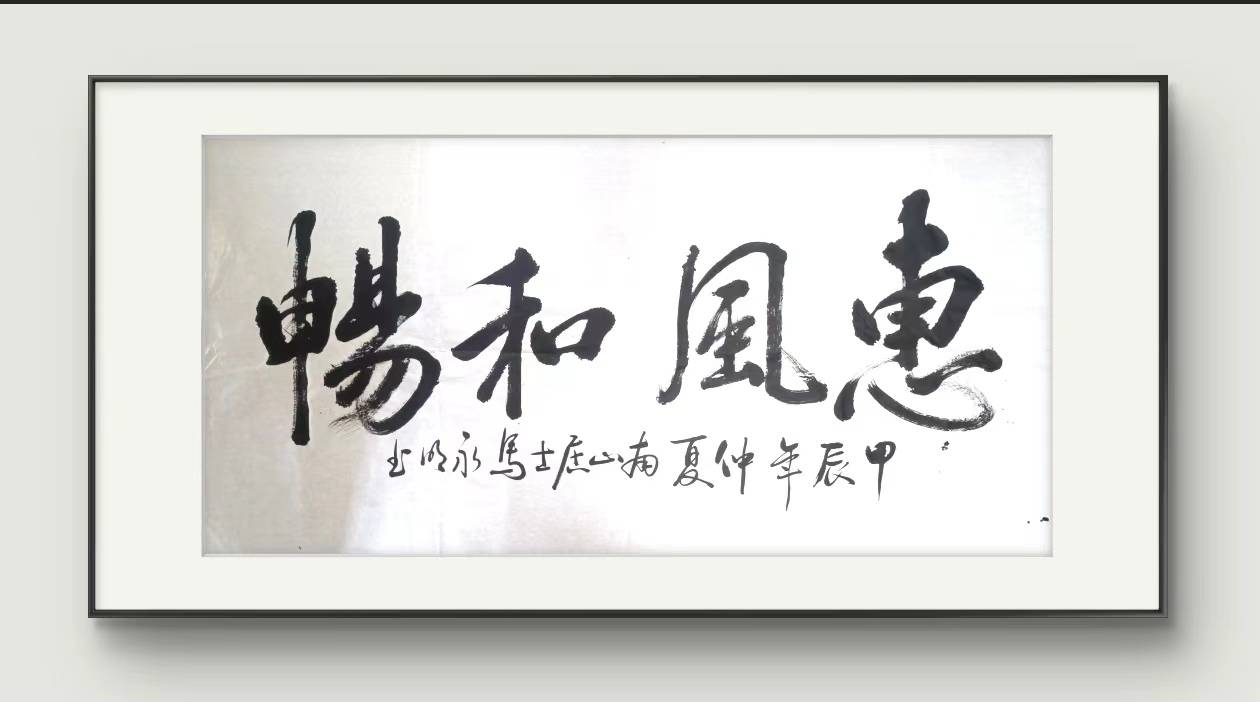 惠風和暢
甲辰年仲夏南山居士馬永明书